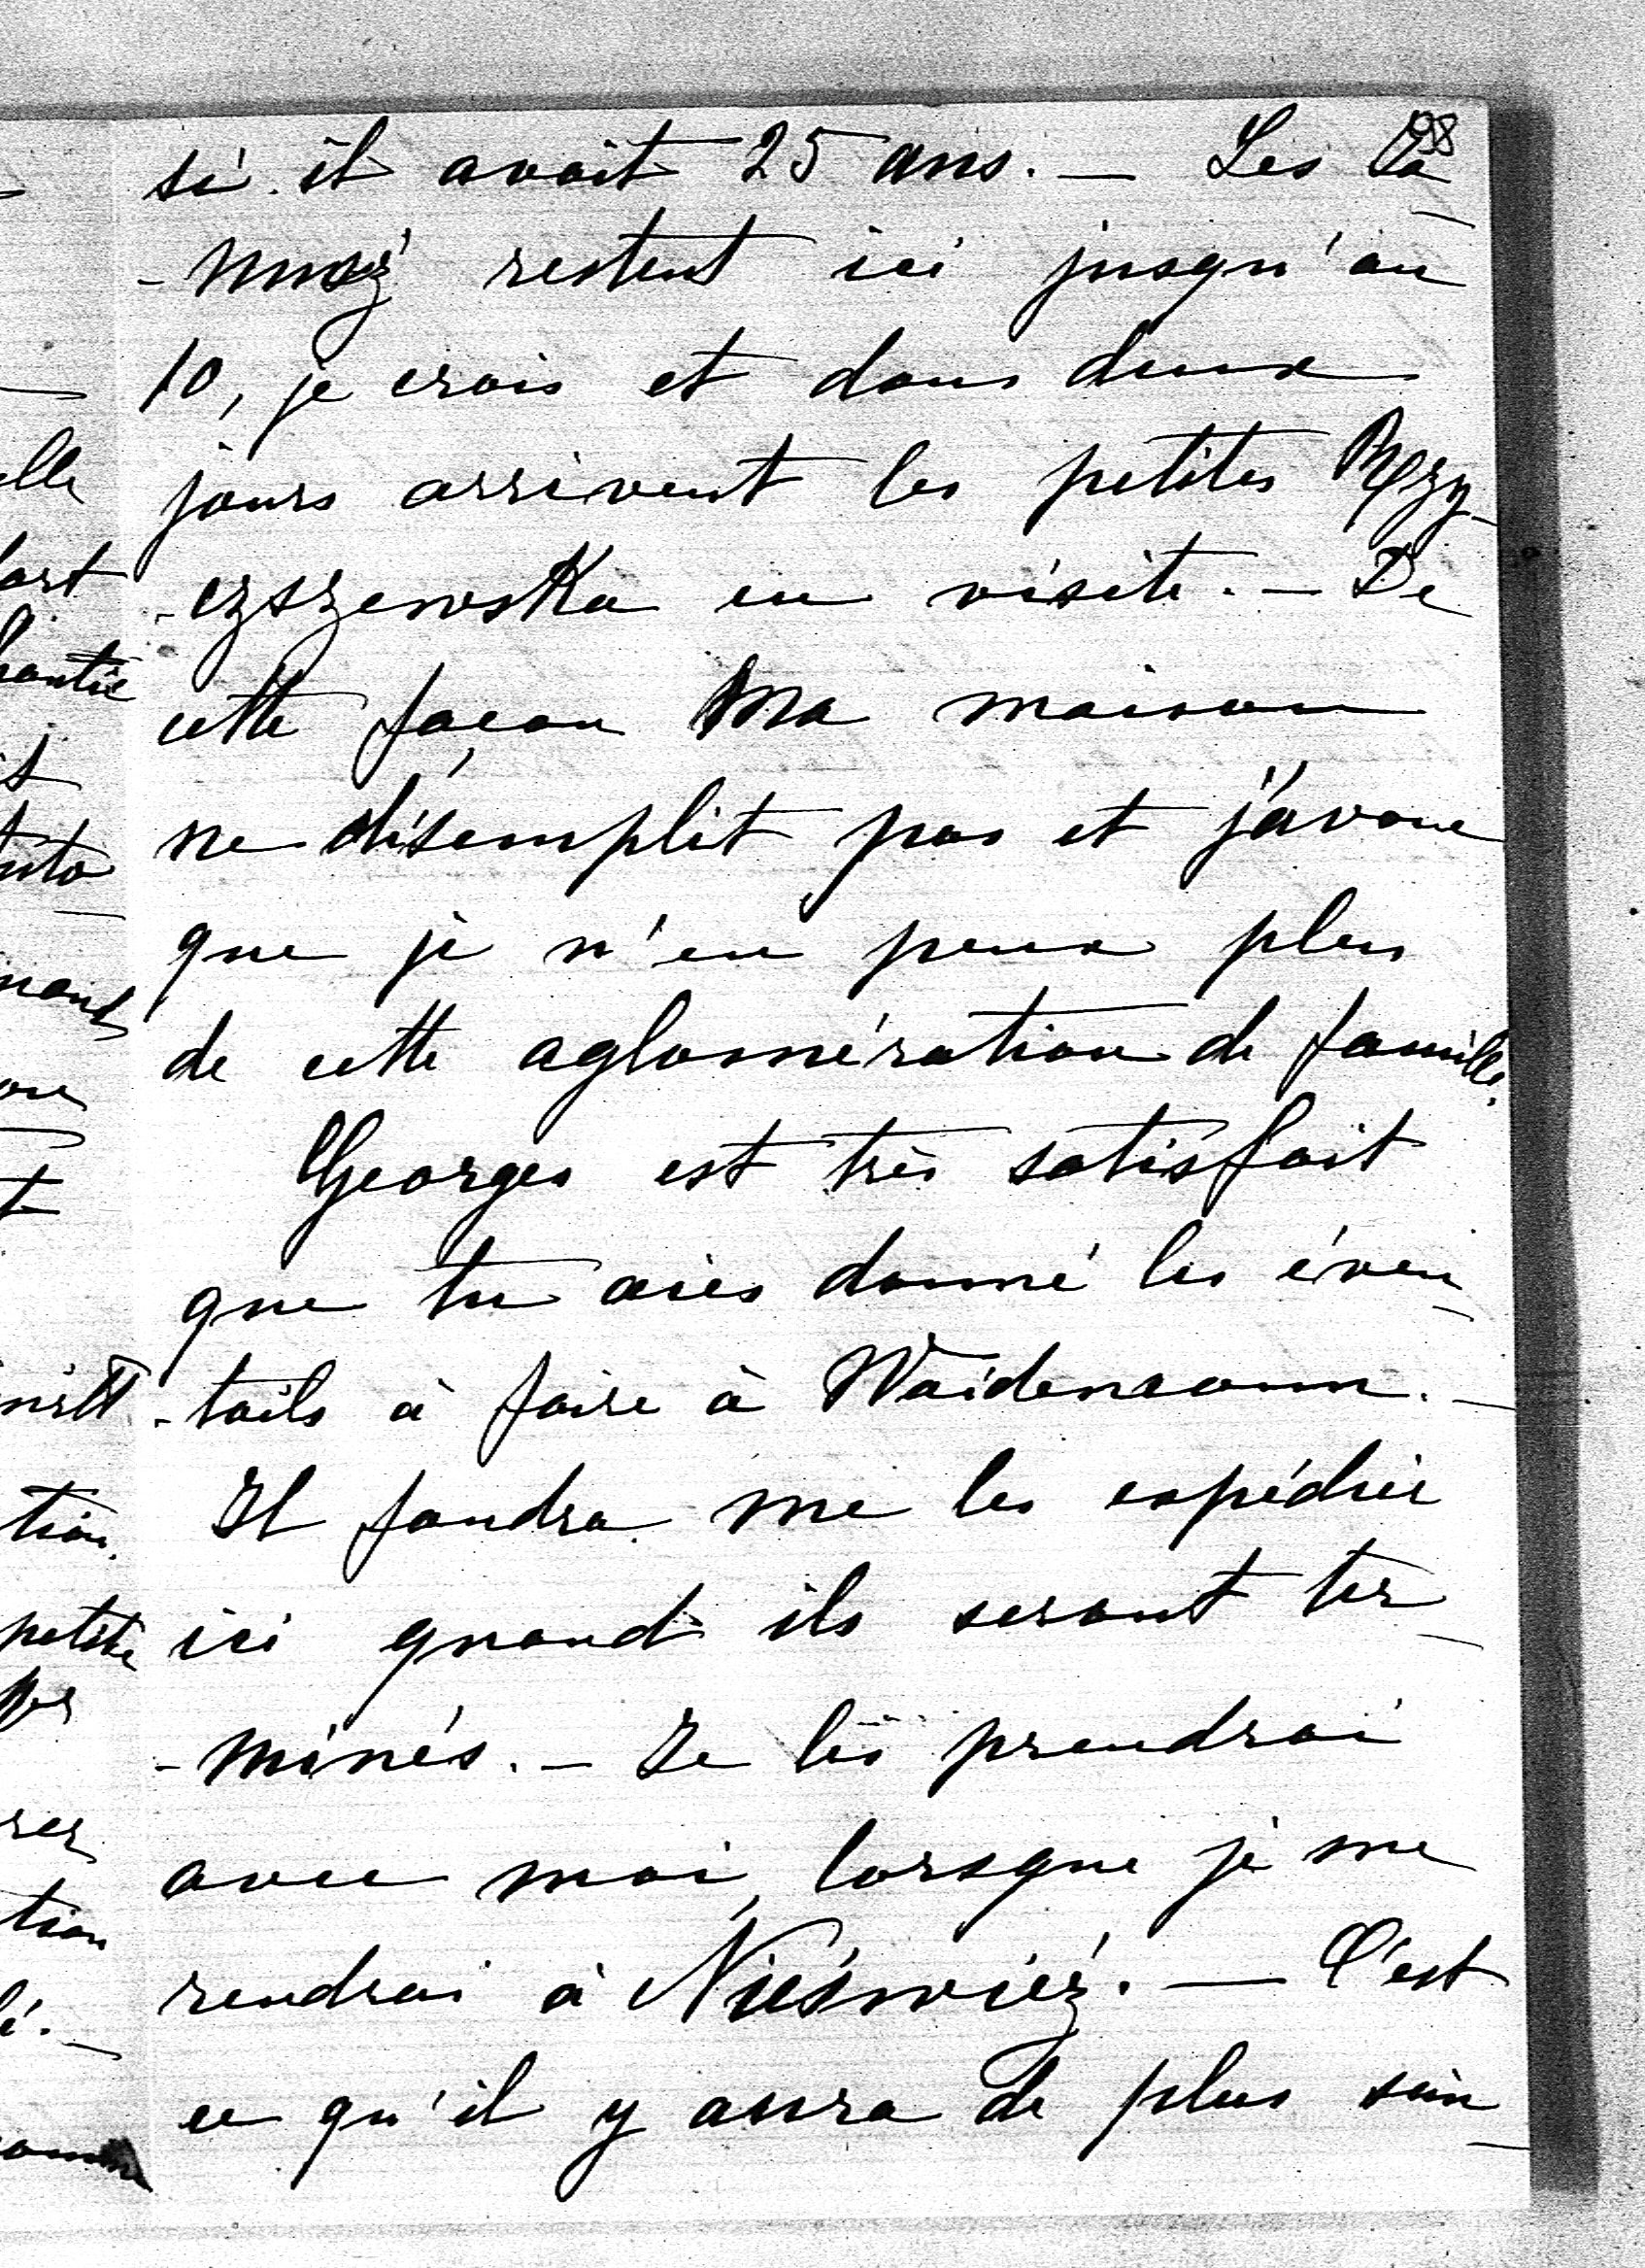 98
si il avait 25 ans. — Les Ja
-nusz restent ici jusqu'au
10, je crois et dans deux
jours arrivent les petites Rzy-
-czszewska en visite. — De
cette façon ma maison
ne désemplit pas et j'avoue
que je n'en peux plus
de cette aglomération de famille.
Georges est très satisfait
que tu aies donné les éven-
-tails à faire à
Il faudra me les expédier
ici quand ils seront ter-
-minés. — Je les prendrai
avec moi, lorsque je me
rendrai à Nieświeź. — C'est
ce qu'il y aura de plus sim-